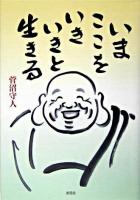 いま
ここを
いき
いきと
生きる
菅沼守人